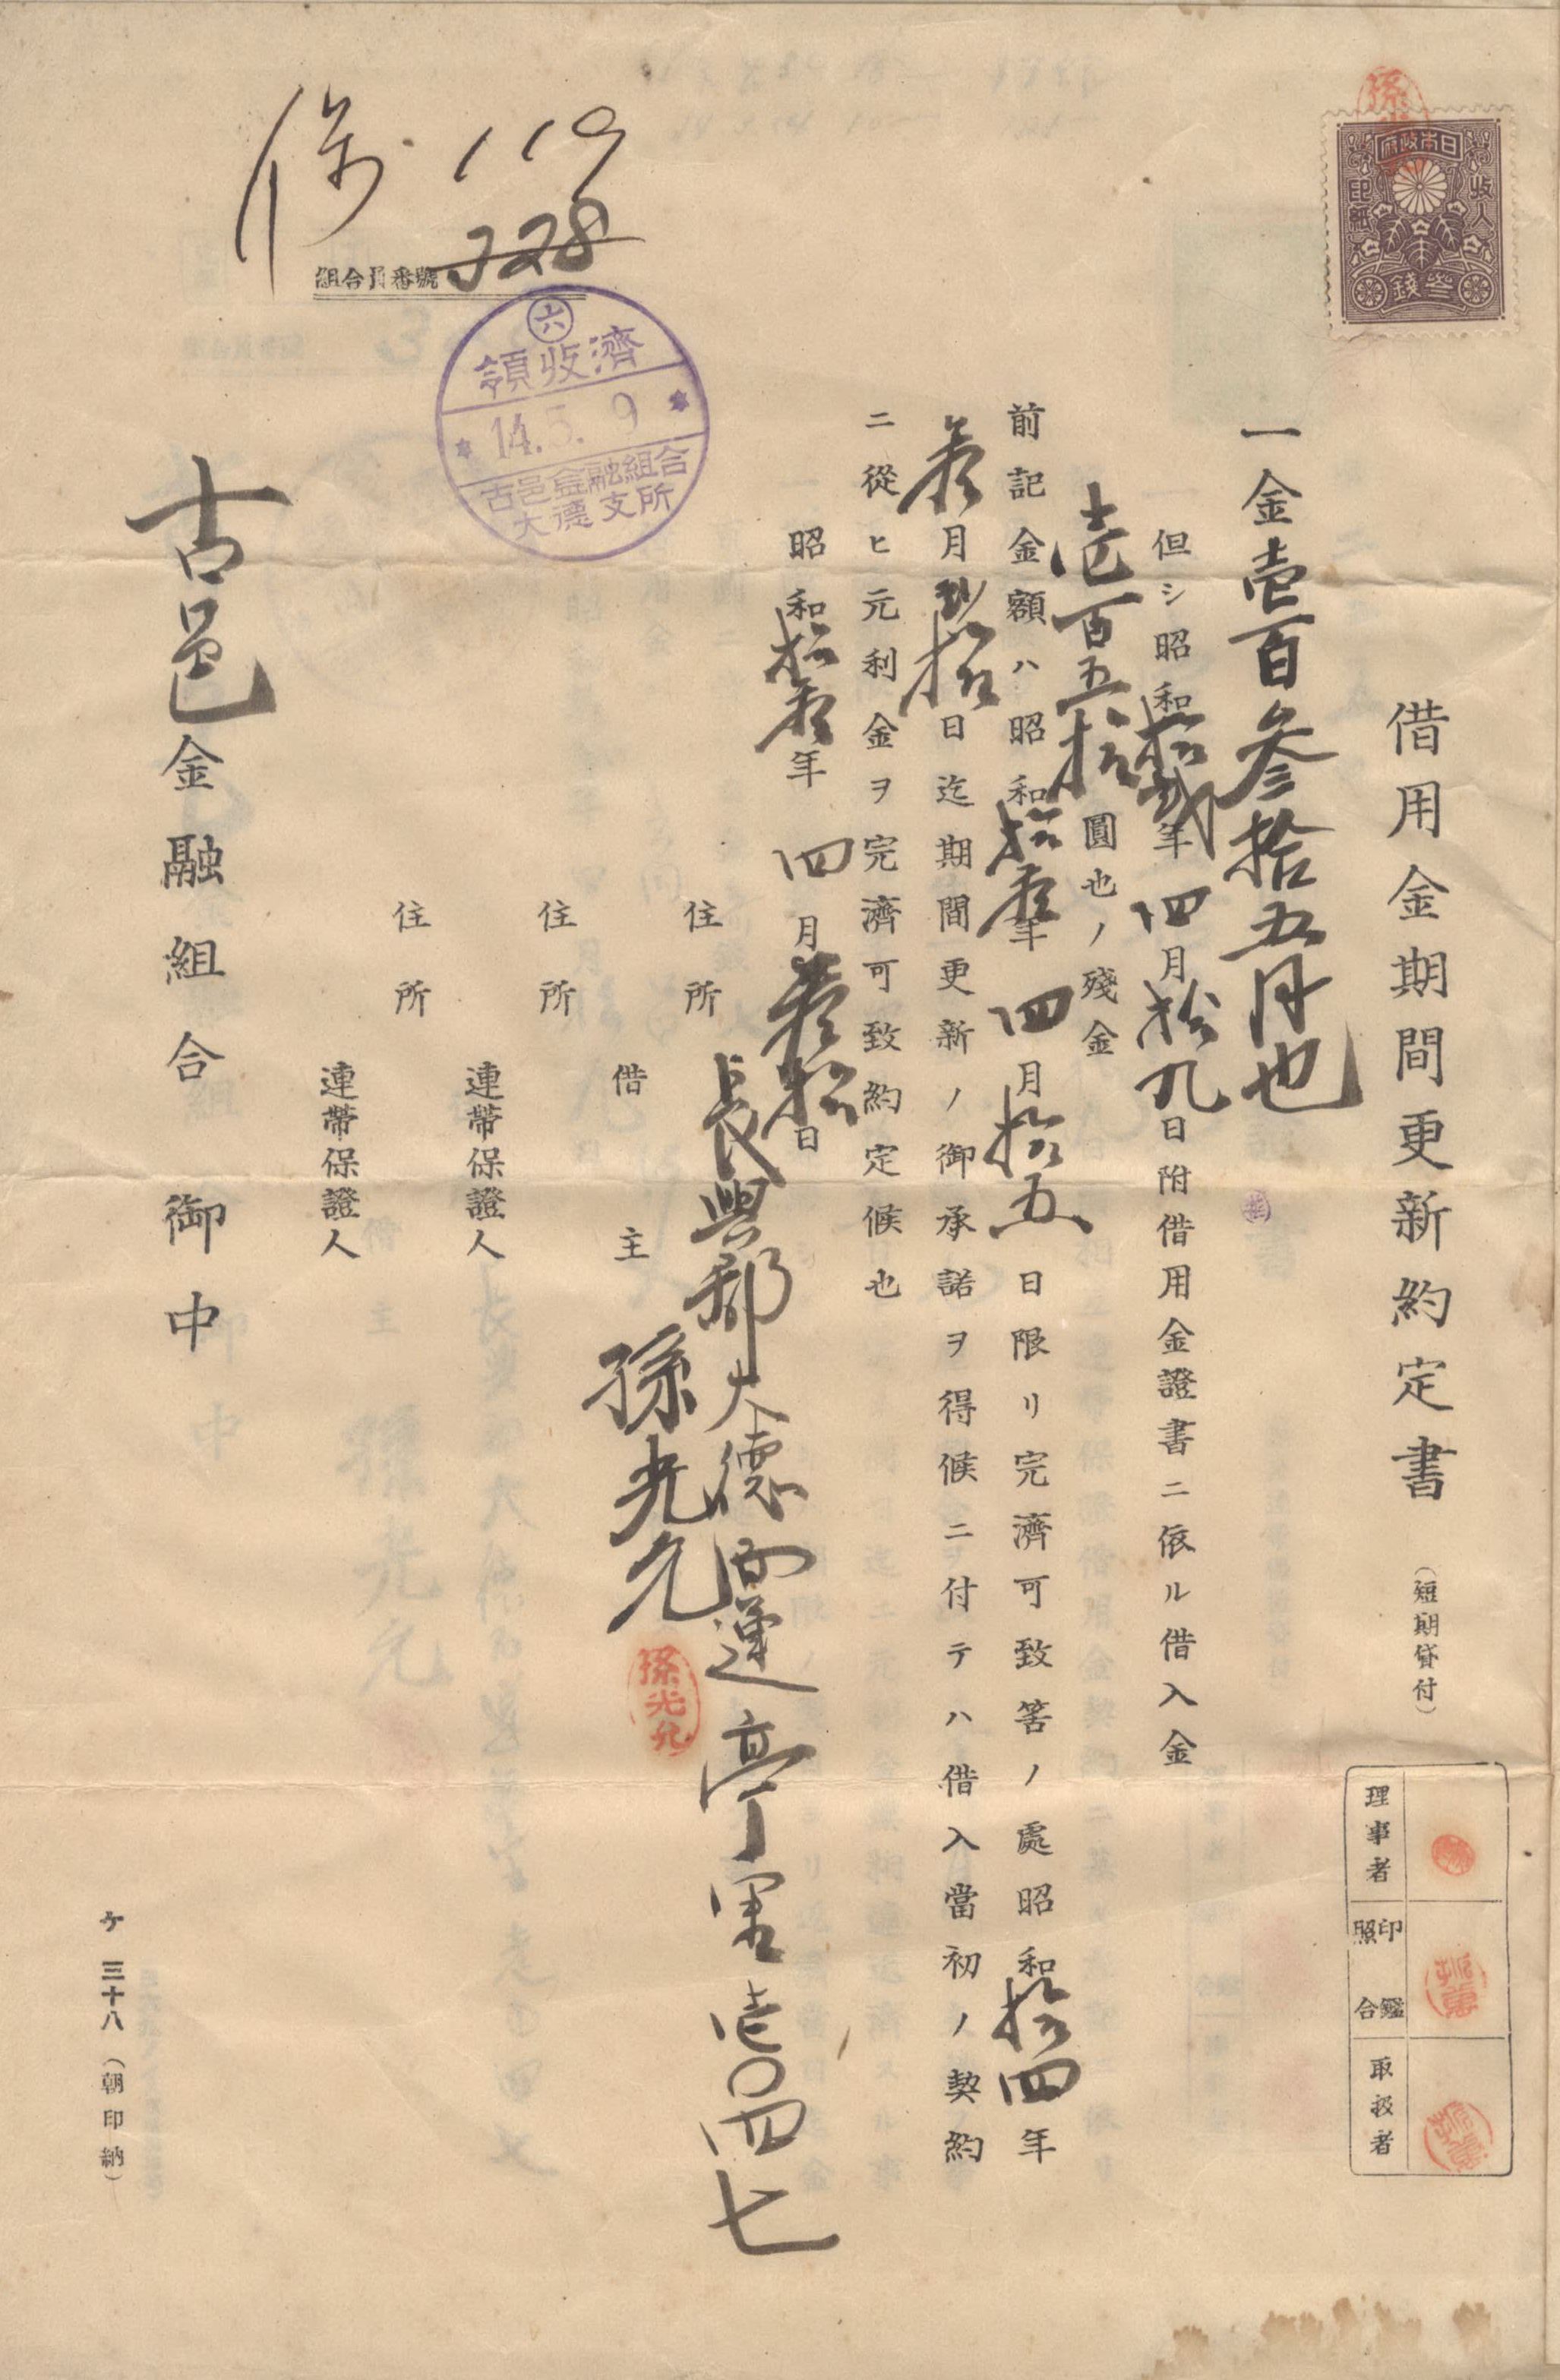 借用金期間更新約定書 （短期貸付）
日本政府
收入印紙
參錢
理事者
印鑑照合
取扱者
一金壱百參拾五円也
但シ昭和拾貳年四月拾九日附借用金證書ニ依ル借入金
壱百五拾圓也ノ殘金
前記金額ハ昭和拾參年四月拾五日限リ完濟可致筈ノ處昭和拾四年
參月 拾日迄期間更新ノ御承諾ヲ得候ニ付テハ借入當初ノ契約
ニ從ヒ元利金ヲ完濟可致約定候也
昭和拾參年四月參拾日
住所 長興郡大德面蓮亭里壱〇四七
借主 孫光允
孫光允
住所
連帶保證人
住所
連帶保證人
古邑金融組合 御中
119
組合員番號 228
六
領收濟
14.5.9
古邑金融組合
大德支所
ケ 三十八 （朝印納）